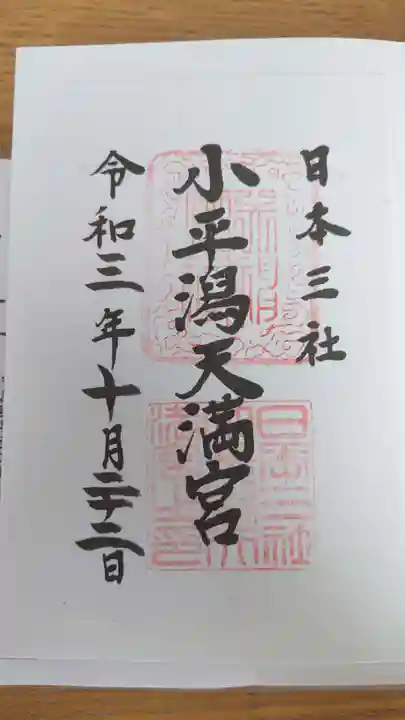 日本三社
小平潟天満宮
令和三年十月二十二日
日本三社